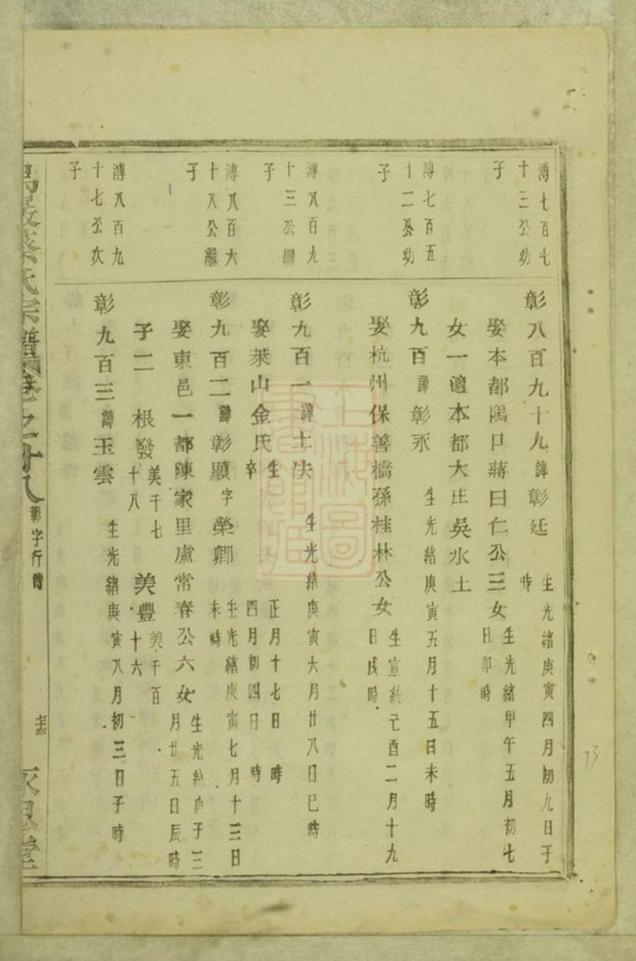 溥七百七
十三公幼
子
彰八百九十九諱彰廷 生光緒庚寅四月初九日子
時
娶本都隝口蔣曰仁公三女 生光緒甲午五月初七
日卯時
女一適本都大庄吳水土
溥七百五
十二公幼
子
彰九百諱彰永 生光緒庚寅五月十五日未時
娶杭州保善橋孫桂林公女 生宣統己酉二月十九
日戌時
溥八百九
十三公繼
子
彰九百一諱土法 生光緒庚寅六月廿八日巳時
娶萊山金氏 生 正月十七日 時
卒 四月初四日 時
溥八百六
十八公繼
子
彰九百二諱彰顯字榮卿 生光緒庚寅七月十三日
未時
娶東邑一都陳家里盧常春公六女 生光緒庚子三
月廿五日辰時
子二 根發 美千七
十八 美豐 美千百
十六
溥八百九
十七公次
子
彰九百三諱玉雲 生光緒庚寅八月初三日子時
氏宗譜卷之廿八 彰字行傳